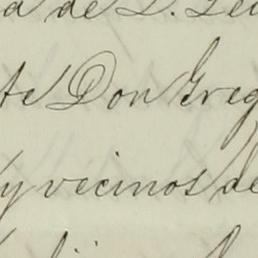 a de D. Leu
te Don Greg
y vecinos de